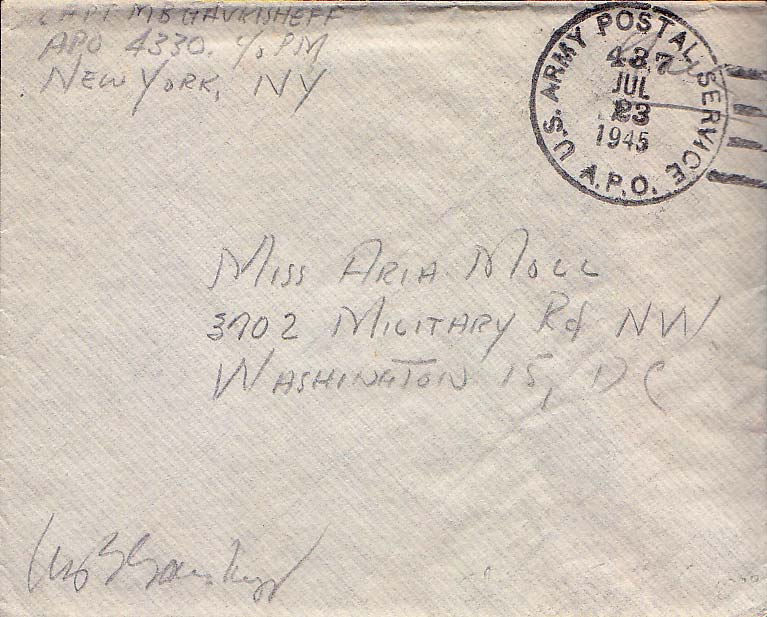 CAPT MB GAVRISHEFF
APO 4330. c/o PM
NEW YORK, NY
U.S. ARMY POSTAL SERVICE
437
JUL
23
1945
A.P.O.
MISS ARIA MOLL
3702 MILITARY Rd NW
WASHINGTON 15, DC
MB Gavrisheff